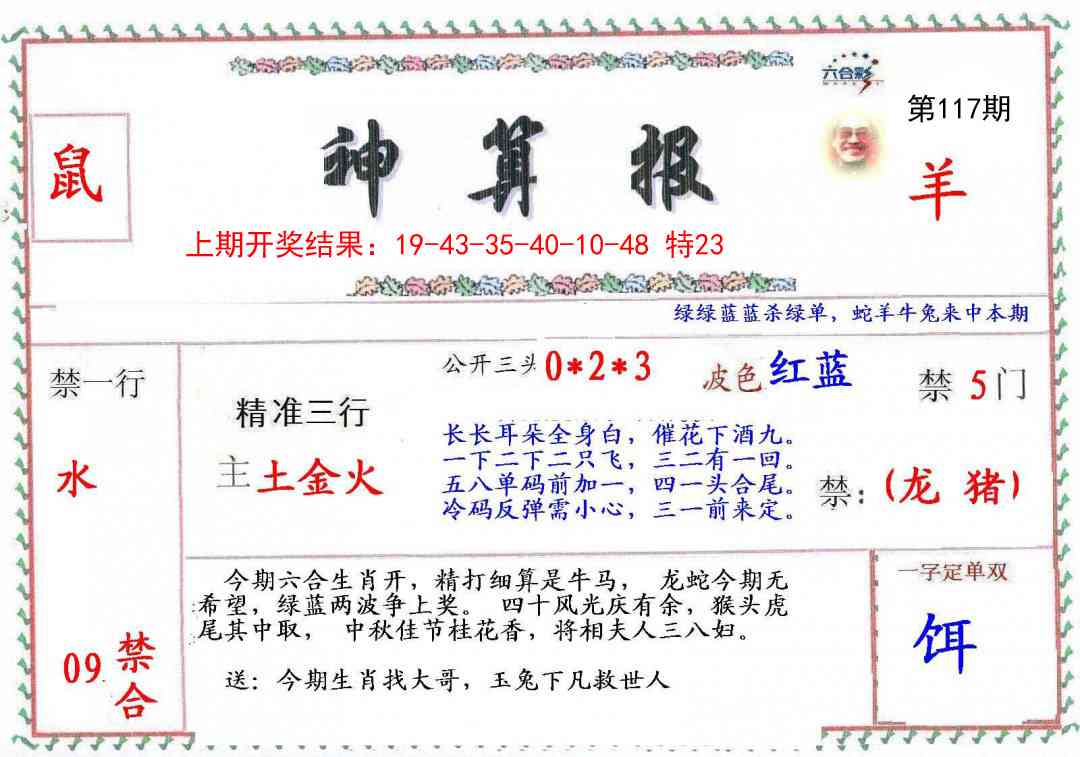 六合彩
第117期
鼠
神算报
羊
上期开奖结果：19-43-35-40-10-48 特23
绿绿蓝蓝杀绿单，蛇羊牛兔来中本期
禁一行
公开三头0*2*3
波色红蓝
禁5门
精准三行
水
主土金火
长长耳朵全身白，催花下酒九。
一下二下二只飞，三二有一回。
五八单码前加一，四一头合尾。
冷码反弹需小心，三一前来定。
禁：(龙 猪)
今期六合生肖开，精打细算是牛马， 龙蛇今期无
希望，绿蓝两波争上奖。 四十风光庆有余，猴头虎
尾其中取， 中秋佳节桂花香，将相夫人三八妇。
送：今期生肖找大哥，玉兔下凡救世人
09禁合
一字定单双
饵